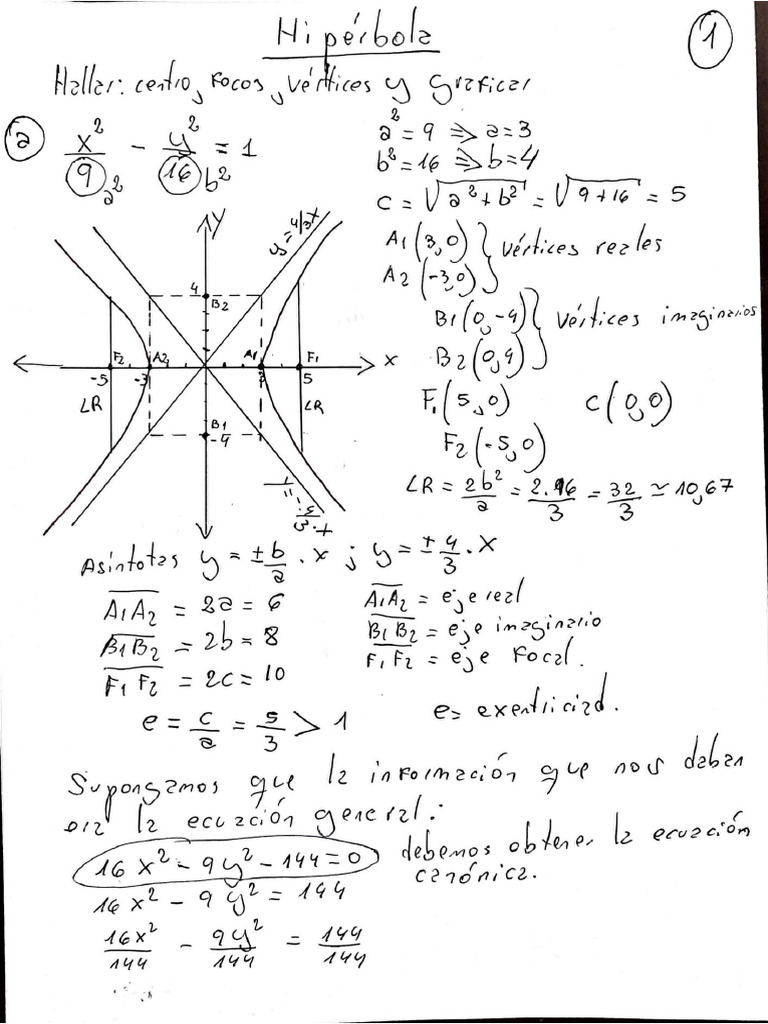 Hipérbola
1
Hallar: centro, focos, vértices y graficar
a) x²/9 - y²/16 = 1
a² b²
a² = 9 ⇒ a = 3
b² = 16 ⇒ b = 4
c = √(a² + b²) = √(9 + 16) = 5
A1 (3,0) } vértices reales
A2 (-3,0)
B1 (0,-4) } vértices imaginarios
B2 (0,4)
F1 (5,0) C (0,0)
F2 (-5,0)
LR = 2b²/a = 2.16/3 = 32/3 ≃ 10,67
Y
y = 4/3 x
4
B2
F2 A2 A1 F1 x
-5 -3 3 5
LR LR
B1
-4
Asíntotas y = ± b/a . x ; y = ± 4/3 . x
A1A2 = 2a = 6 A1A2 = eje real
B1B2 = 2b = 8 B1B2 = eje imaginario
F1F2 = 2c = 10 F1F2 = eje focal.
e = c/a = 5/3 > 1 e = exentricidad.
Supongamos que la información que nos daban
era la ecuación general:
16x² - 9y² - 144 = 0 debemos obtener la ecuación
canónica.
16x² - 9y² = 144
16x²/144 - 9y²/144 = 144/144